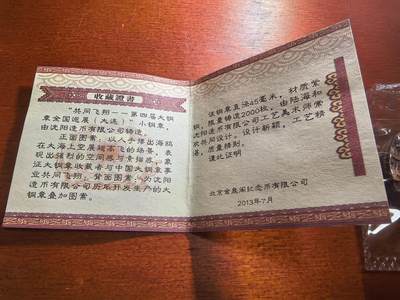 收藏證書
“共同飞翔——第四届大铜
章全国巡展（大连）”小铜章，
由沈阳造币有限公司铸造。
正面图素，以人手 出海鸥
在大海上空展翅高飞的场景，表
现出强烈的空间感与 感，象
征大铜章收藏者与中国大铜章事
业共同飞翔；背面图素，为沈阳
造币有限公司历年开发生产的大
铜章叠加图案。
该铜章直径45毫米，材质紫
铜，限量铸造2000枚。由陆海和
沈阳造币有限公司工艺美术师常
欢共同设计。设计新颖，工艺精
湛，质量精到。
谨此证明
北京金泉阁纪念币有限公司
2013年7月